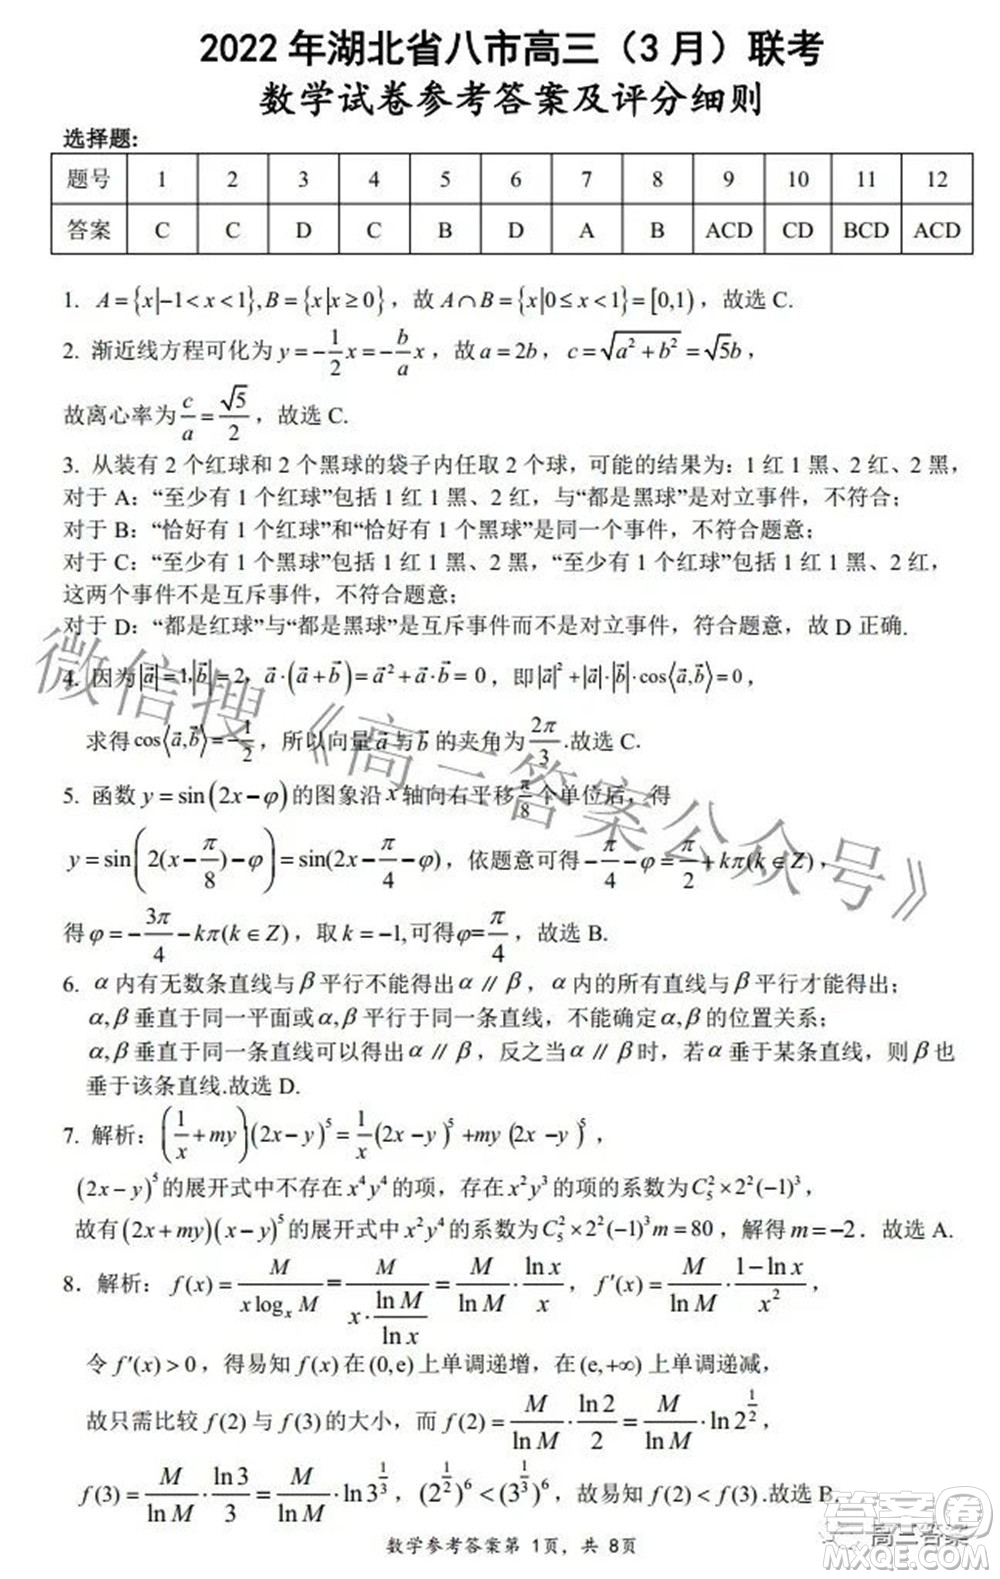 2022 年湖北省八市高三（3 月）联考
数学试卷参考答案及评分细则
选择题:
题号 1 2 3 4 5 6 7 8 9 10 11 12
答案 C C D C B D A B ACD CD BCD ACD
1. A={x|-1<x<1},B={x|x≥0}，故 A∩B={x|0≤x<1}=[0,1)，故选 C.
2. 渐近线方程可化为 y=-1/2 x=-b/a x，故 a=2b，c=√(a²+b²)=√5b，
故离心率为 c/a=√5/2，故选 C.
3. 从装有 2 个红球和 2 个黑球的袋子内任取 2 个球，可能的结果为：1 红 1 黑、2 红、2 黑，
对于 A：“至少有 1 个红球”包括 1 红 1 黑、2 红，与“都是黑球”是对立事件，不符合；
对于 B：“恰好有 1 个红球”和“恰好有 1 个黑球”是同一个事件，不符合题意；
对于 C：“至少有 1 个黑球”包括 1 红 1 黑、2 黑，“至少有 1 个红球”包括 1 红 1 黑、2 红，
这两个事件不是互斥事件，不符合题意；
对于 D：“都是红球”与“都是黑球”是互斥事件而不是对立事件，符合题意，故 D 正确.
4. 因为|a⃗|=1,|b⃗|=2，a⃗·(a⃗+b⃗)=a⃗²+a⃗·b⃗=0，即|a⃗|²+|a⃗|·|b⃗|·cos⟨a⃗,b⃗⟩=0，
求得 cos⟨a⃗,b⃗⟩=-1/2，所以向量 a⃗ 与 b⃗ 的夹角为 2π/3.故选 C.
5. 函数 y=sin(2x-φ)的图象沿 x 轴向右平移 π/8 个单位后，得
y=sin(2(x-π/8)-φ)=sin(2x-π/4-φ)，依题意可得-π/4-φ=π/2+kπ(k∈Z)，
得 φ=-3π/4-kπ(k∈Z)，取 k=-1,可得φ=π/4，故选 B.
6. α内有无数条直线与β平行不能得出α∥β，α内的所有直线与β平行才能得出；
α,β垂直于同一平面或α,β平行于同一条直线，不能确定α,β的位置关系；
α,β垂直于同一条直线可以得出α∥β，反之当α∥β时，若α垂于某条直线，则β也
垂于该条直线.故选 D.
7. 解析：(1/x+my)(2x-y)⁵=1/x(2x-y)⁵+my(2x-y)⁵，
(2x-y)⁵的展开式中不存在x⁴y⁴的项，存在x²y³的项的系数为C₅²×2²(-1)³，
故有(2x+my)(x-y)⁵的展开式中x²y⁴的系数为C₅²×2²(-1)³m=80，解得m=-2．故选 A.
8．解析：f(x)=M/(xlogₓM)=M/(x·lnM/lnx)=M/lnM·lnx/x，f′(x)=M/lnM·(1-lnx)/x²，
令 f′(x)>0，得易知 f(x)在(0,e)上单调递增，在(e,+∞)上单调递减，
故只需比较 f(2)与 f(3)的大小，而 f(2)=M/lnM·ln2/2=M/lnM·ln2^(1/2)，
f(3)=M/lnM·ln3/3=M/lnM·ln3^(1/3)，(2^(1/2))⁶<(3^(1/3))⁶，故易知 f(2)<f(3).故选 B.
数学参考答案第 1页，共 8页
微信搜《高三答案公众号》
高三答案
答案圈
MXQE.COM